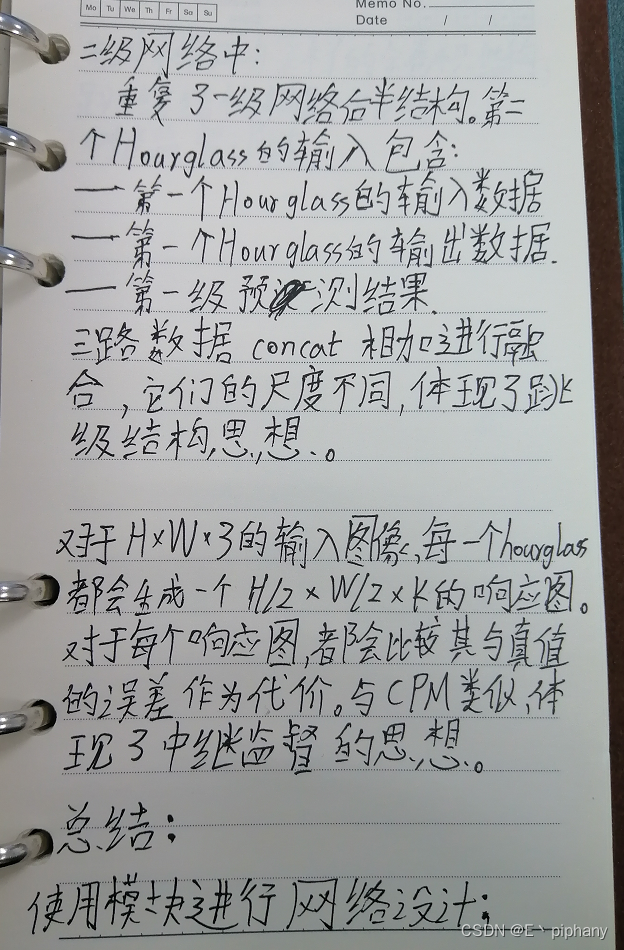 Memo No.
Mo Tu We Th Fr Sa Su
Date / /
二级网络中:
重复了一级网络后半结构。第二
个Hourglass的输入包含:
— 第一个Hourglass的输入数据
— 第一个Hourglass的输出数据.
— 第一级预测结果.
三路数据 concat 相加进行融
合,它们的尺度不同,体现了跃
级结构思想。
对于H×W×3的输入图像,每一个hourglass
都会生成一个 H/2×W/2×K的响应图。
对于每个响应图,都会比较其与真值
的误差作为代价。与CPM类似,体
现了中继监督的思想。
总结:
使用模块进行网络设计;
CSDN @E丶piphany